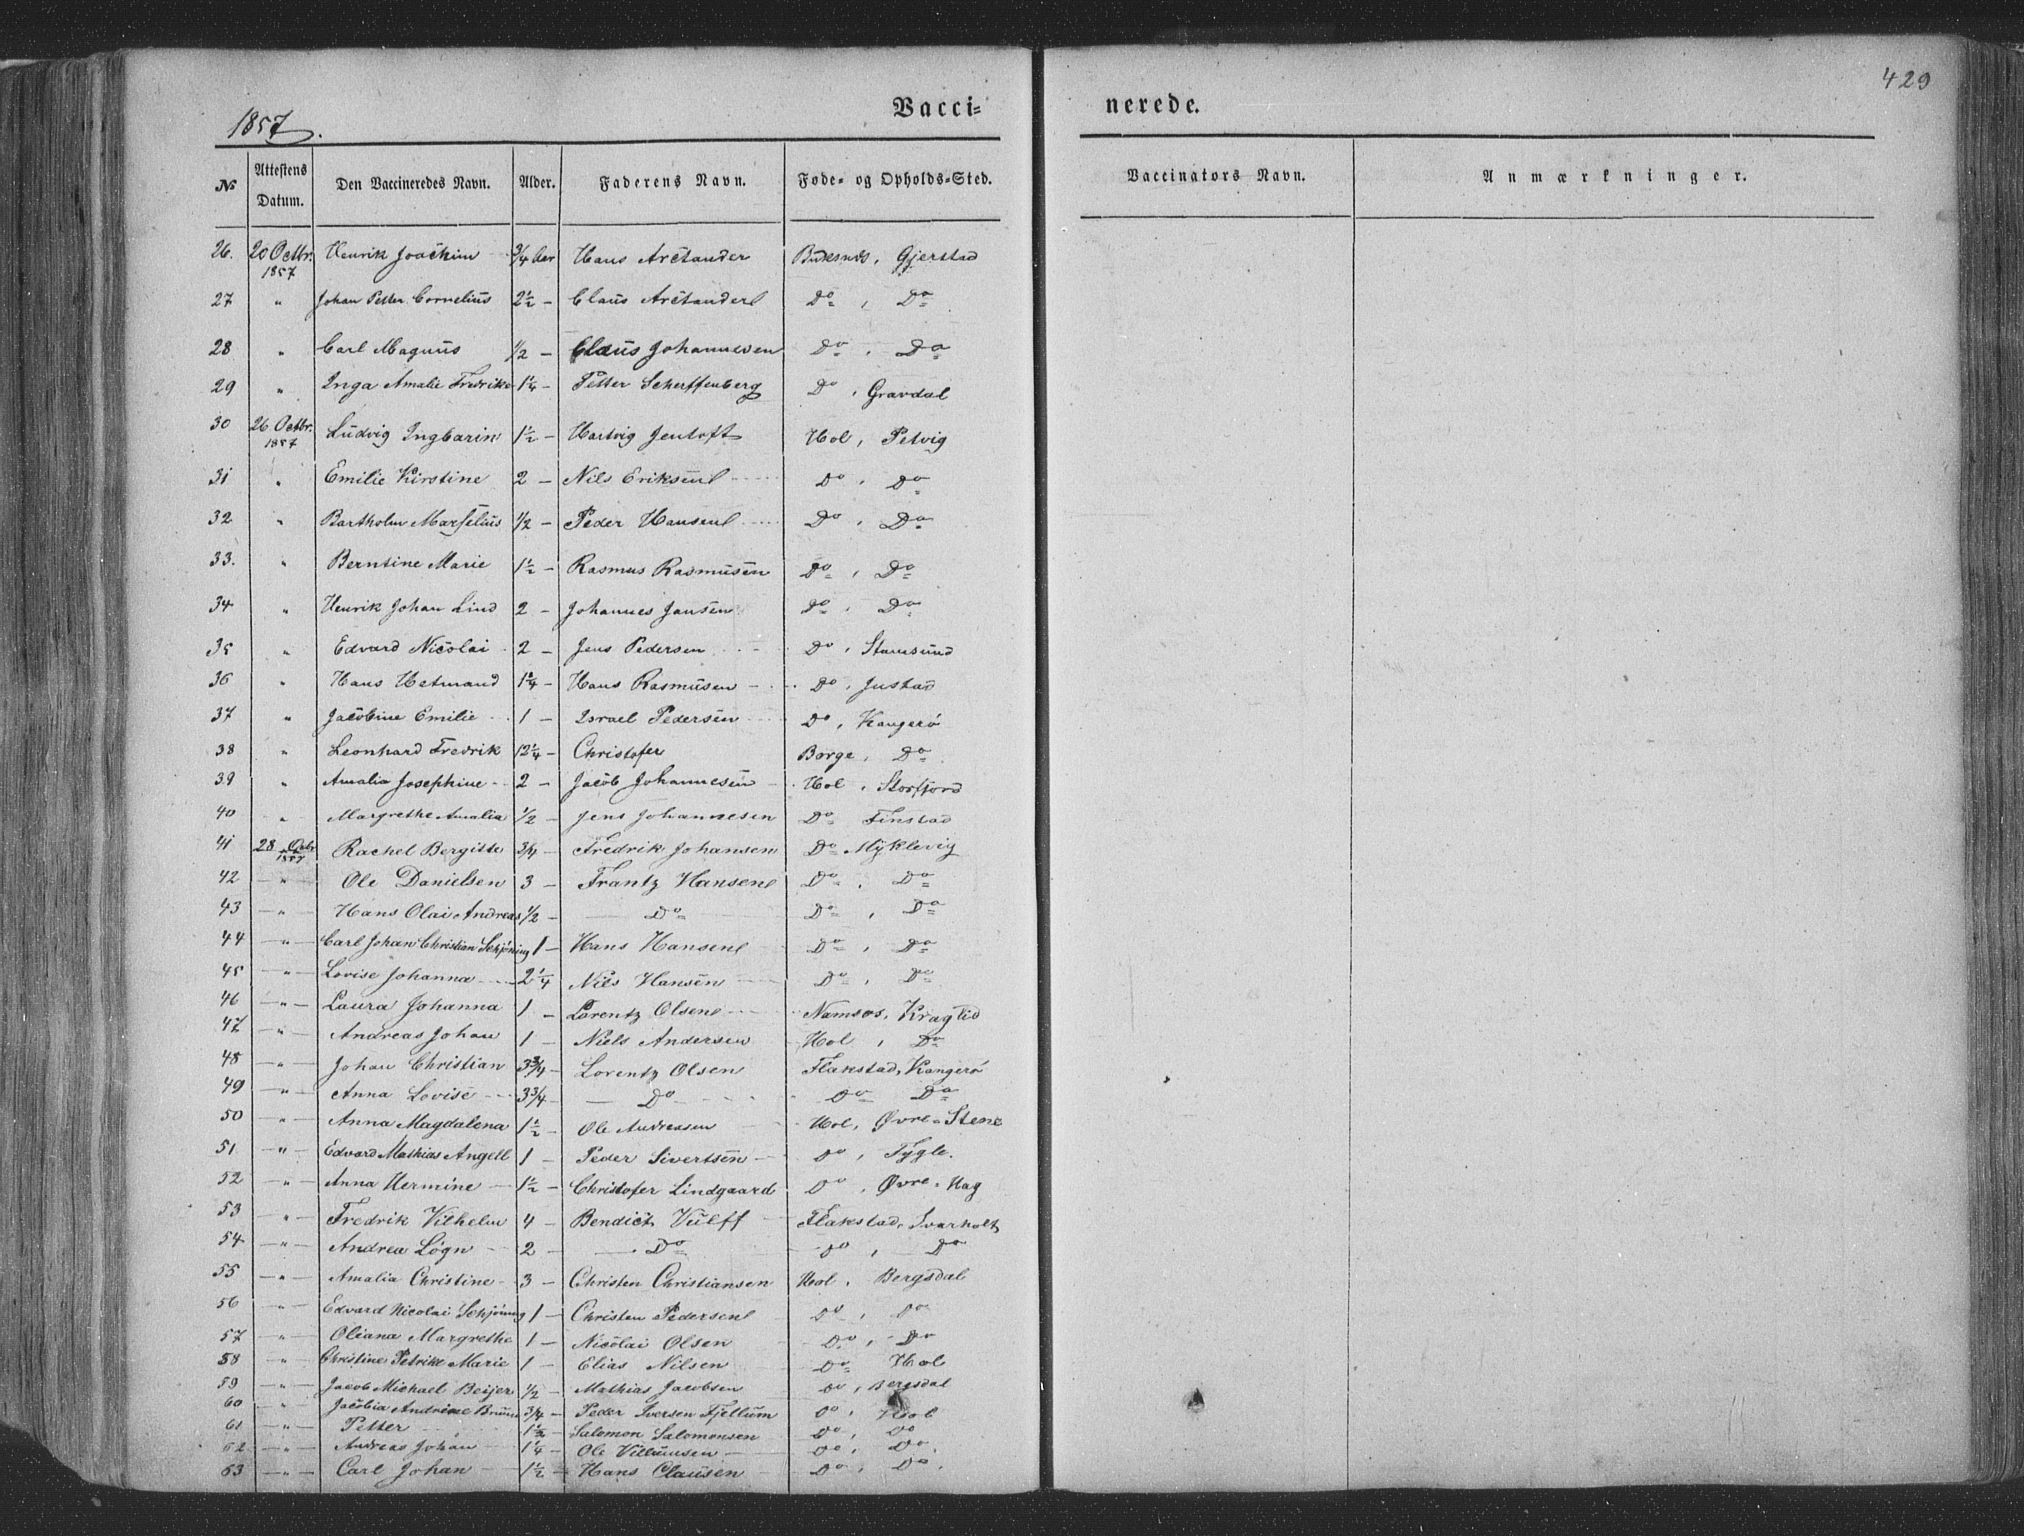 429
1857.
Vacci-
nerede.
№ Attestens Datum. Den Vaccineredes Navn. Alder. Faderens Navn. Føde- og Opholds-Sted. Vaccinators Navn. Anmærkninger.
26. 20 Octbr. 1857 Henrik Joachim 3/4 Aar Hans Arctander Buksnæs, Gjerstad
27 " Johan Petter Cornelius 2 1/2 – Claus Arctander Do, Do
28 " Carl Magnus 1/2 – Claus Johannesen Do, Do
29 " Inga Amalie Fredrike 1 1/4 – Petter Scherffenberg Do, Gravdal
30 26 Octbr. 1857 Ludvig Ingbarin 1 1/2 – Hartvig Jentoft Hol, Petvig
31 " Emilie Kirstine 2 – Nils Eriksen Do, Do
32 " Bartholm Marselius 1/2 – Peder Hansen Do, Do
33. " Berntine Marie 1 1/2 – Rasmus Rasmusen Do, Do
34 " Henrik Johan Lind 2 – Johannes Jansen Do, Do
35 " Edvard Nicolai 2 – Jens Pedersen Do, Stamsund
36 " Hans Hetmand 1 1/4 – Hans Rasmusen Do, Justad
37 " Jacobine Emilie 1 – Israel Pedersen Do, Kangerø
38 " Leonhard Fredrik 12 1/4 – Christofer Borge, Do
39 " Amalia Josephine 2 – Jacob Johannesen Hol, Storfjord
40 " Margrethe Amalia 1/2 – Jens Johannesen Do Finstad
41 28 Octb 1857 Rachel Bergitte 3/4 – Fredrik Johansen Do Myklevig
42 " Ole Danielsen 3 – Frantz Hansen Do, Do
43 " Hans Olai Andreas 1/2 – Do Do, Do
44 " Carl Johan Christian Schjøning 1 – Hans Hansen Do, Do
45 " Lovise Johanna 2 1/4 Nils Hansen Do, Do
46 " Laura Johanna 1 – Lorentz Olsen Namsos, Kragtid
47 " Andreas Johan 1 – Niels Andersen Hol, Do
48 " Johan Christian 3 3/4 – Lorentz Olsen Flakstad, Kangerø
49 " Anna Lovise 3 3/4 – Do Do Do
50 " Anna Magdalena 1 1/2 – Ole Andreasen Hol, Øvre-Stene
51 " Edvard Mathias Angell 1 – Peder Sivertsen Do, Fygle.
52 " Anna Hermine 1 1/2 – Christofer Lindgaard Do, Øvre-Hag
53 " Fredrik Vilhelm 4 – Bendict Vulff Flakstad, Svarholt
54 " Andrea Løgn 2 – Do Do, Do
55 " Amalia Christine 3 – Christen Christiansen Hol, Bergsdal
56 " Edvard Nicolai Schjøning 1 – Christen Pedersen Do, Do
57 " Oliana Margrethe 1 – Nicolai Olsen Do, Do
58 " Christine Petrike Marie 1 – Elias Nilsen Do Hol
59 " Jacob Michael Beijer 1/2 – Mathias Jacobsen Do, Bergsdal
60 " Jacobia Andrine Bruun 3/4 – Peder Iversen Fjellum Do, Hol
61 " Petter 1 1/2 – Salomon Salomonsen Do, Do
62 " Andreas Johan 1 1/4 – Ole Villumsen Do, Do.
63 " Carl Johan 1 1/2 – Hans Clausen Do, Do.